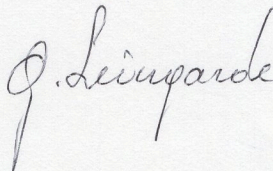 G. Leingarde